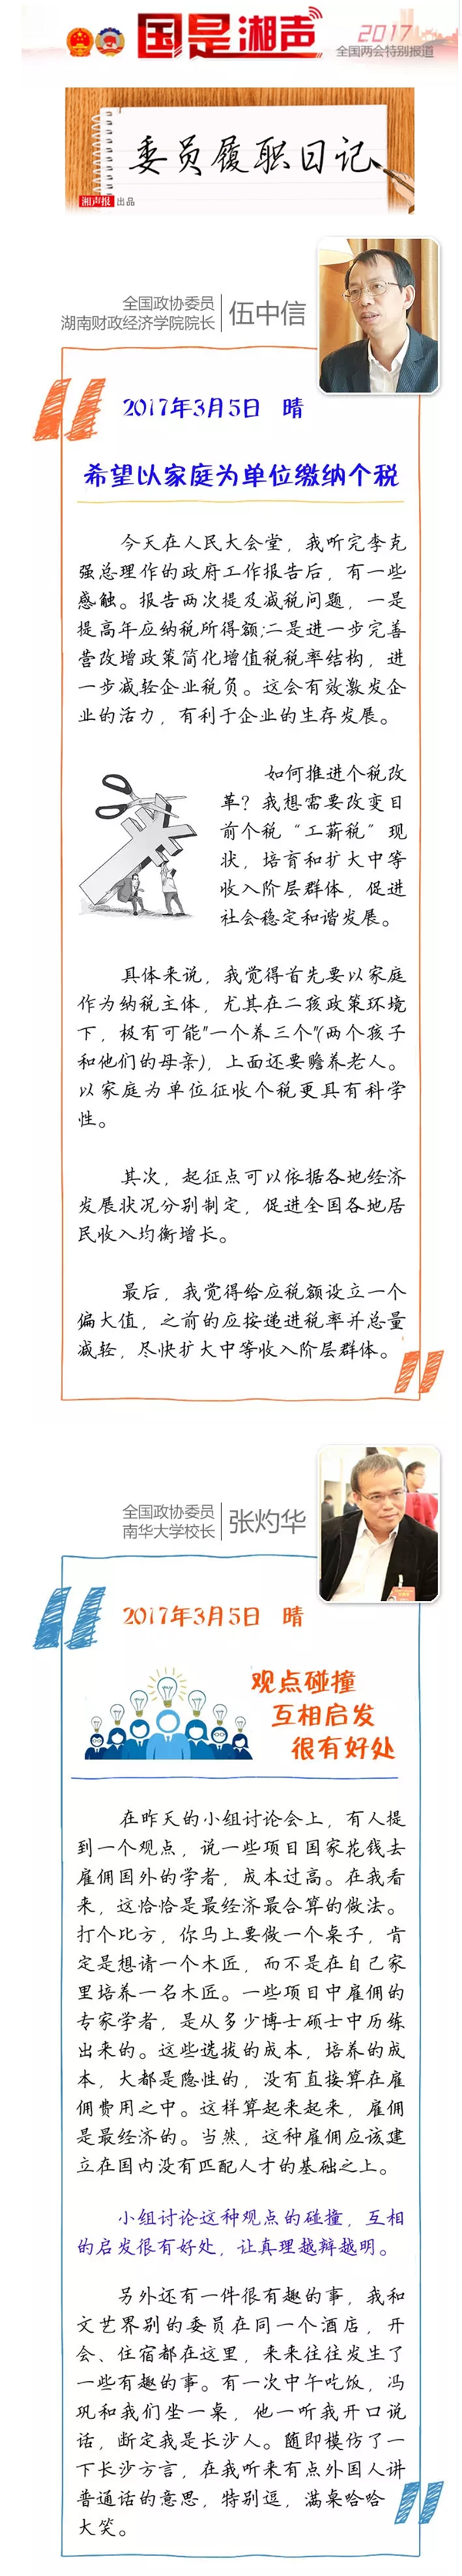 国是湘声
2017
全国两会特别报道
委员履职日记
湘声报 出品
全国政协委员
湖南财政经济学院院长
伍中信
2017年3月5日 晴
希望以家庭为单位缴纳个税
今天在人民大会堂，我听完李克
强总理作的政府工作报告后，有一些
感触。报告两次提及减税问题，一是
提高年应纳税所得额;二是进一步完善
营改增政策简化增值税税率结构，进
一步减轻企业税负。这会有效激发企
业的活力，有利于企业的生存发展。
如何推进个税改
革？我想需要改变目
前个税“工薪税”现
状，培育和扩大中等
收入阶层群体，促进
社会稳定和谐发展。
具体来说，我觉得首先要以家庭
作为纳税主体，尤其在二孩政策环境
下，极有可能"一个养三个"(两个孩子
和他们的母亲)，上面还要赡养老人。
以家庭为单位征收个税更具有科学
性。
其次，起征点可以依据各地经济
发展状况分别制定，促进全国各地居
民收入均衡增长。
最后，我觉得给应税额设立一个
偏大值，之前的应按递进税率并总量
减轻，尽快扩大中等收入阶层群体。
全国政协委员
南华大学校长
张灼华
2017年3月5日 晴
观点碰撞
互相启发
很有好处
在昨天的小组讨论会上，有人提
到一个观点，说一些项目国家花钱去
雇佣国外的学者，成本过高。在我看
来，这恰恰是最经济最合算的做法。
打个比方，你马上要做一个桌子，肯
定是想请一个木匠，而不是在自己家
里培养一名木匠。一些项目中雇佣的
专家学者，是从多少博士硕士中历练
出来的。这些选拔的成本，培养的成
本，大都是隐性的，没有直接算在雇
佣费用之中。这样算起来起来，雇佣
是最经济的。当然，这种雇佣应该建
立在国内没有匹配人才的基础之上。
小组讨论这种观点的碰撞，互相
的启发很有好处，让真理越辩越明。
另外还有一件很有趣的事，我和
文艺界别的委员在同一个酒店，开
会、住宿都在这里，来来往往发生了
一些有趣的事。有一次中午吃饭，冯
巩和我们坐一桌，他一听我开口说
话，断定我是长沙人。随即模仿了一
下长沙方言，在我听来有点外国人讲
普通话的意思，特别逗，满桌哈哈
大笑。